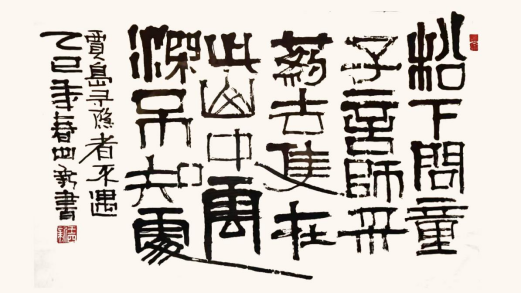 松下問童
子言師采
葯去隻在
此山中雲
深不知處
賈島尋隱者不遇
乙巳年春書